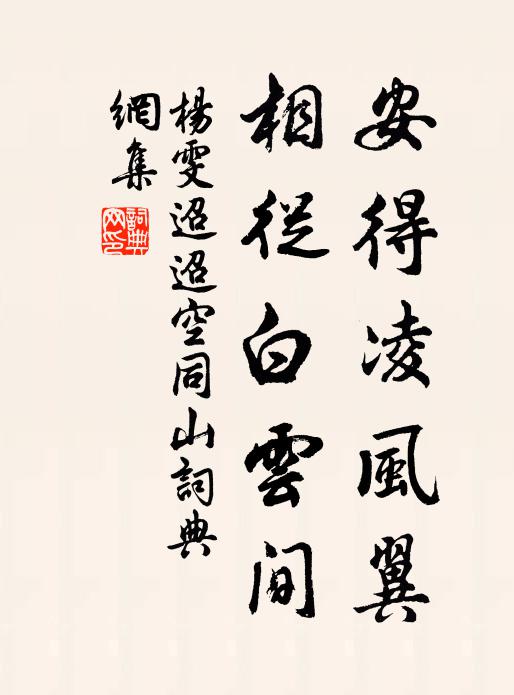 安得凌風翼
相從白雲間
楊雯迢迢空同山詞典
網集
詞典網印